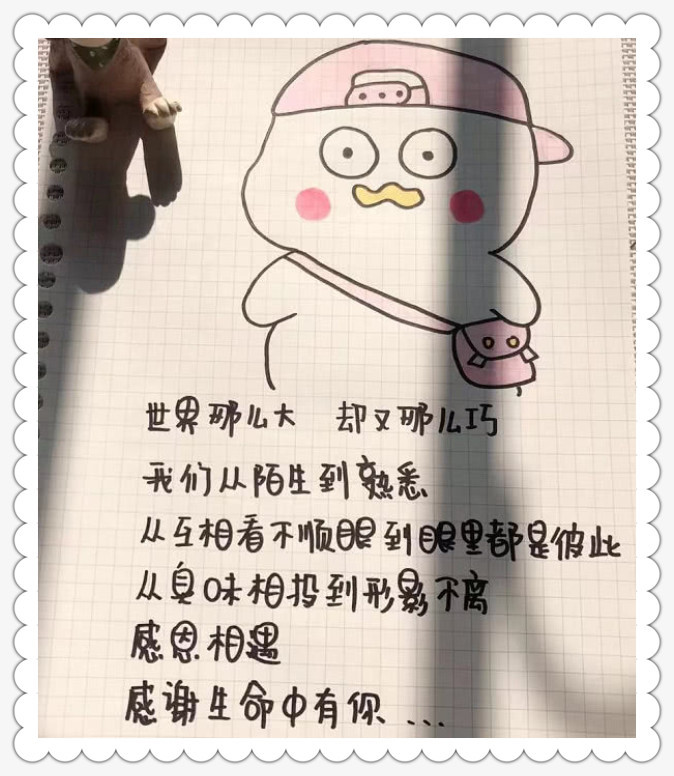 世界那么大 却又那么巧
我们从陌生到熟悉
从互相看不顺眼到眼里都是彼此
从臭味相投到形影不离
感恩相遇
感谢生命中有你 ...